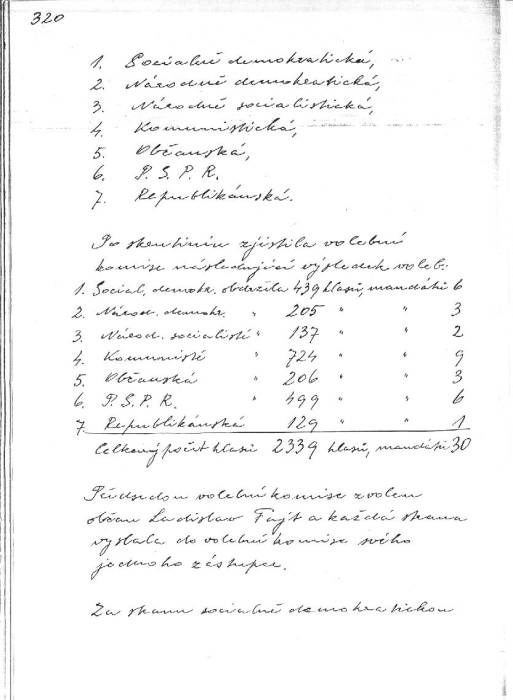 320
1. Socialně demokratická,
2. Národně demokratická,
3. Národně socialistická,
4. Komunistická,
5. Občanská,
6. P. S. P. R.
7. Republikánská.
Po skrutiniu zjistila volební
komise následující výsledek voleb:
1. Social. demokr. obdržela 439 hlasů, mandátů 6
2. Národ. demokr. " 205 " " 3
3. Národ. socialisté " 137 " " 2
4. Komunisté " 724 " " 9
5. Občanská " 206 " " 3
6. P. S. P. R. " 499 " " 6
7. Republikánská 129 " " 1
Celkový počet hlasů 2339 hlasů, mandátů 30
Předsedou volební komise zvolen
občan Ladislav Fajt a každá strana
vyslala do volební komise svého
jednoho zástupce.
Za stranu socialně demokratickou